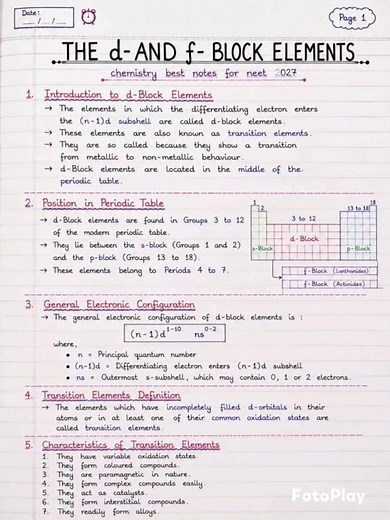 Date:
__ / __ / __
Page 1
THE d- AND f- BLOCK ELEMENTS
chemistry best notes for neet 2027
1. Introduction to d-Block Elements
→ The elements in which the differentiating electron enters
the (n-1)d subshell are called d-block elements.
→ These elements are also known as transition elements.
→ They are so called because they show a transition
from metallic to non-metallic behaviour.
→ d-Block elements are located in the middle of the
periodic table.
2. Position in Periodic Table
→ d-Block elements are found in Groups 3 to 12
of the modern periodic table.
→ They lie between the s-block (Groups 1 and 2)
and the p-block (Groups 13 to 18).
→ These elements belong to Periods 4 to 7.
1
2
3 to 12
13 to 18
18
s-Block
d-Block
p-Block
f-Block (Lanthanides)
f-Block (Actinides)
3. General Electronic Configuration
→ The general electronic configuration of d-block elements is :
(n-1)d¹⁻¹⁰ ns⁰⁻²
where,
• n = Principal quantum number
• (n-1)d = Differentiating electron enters (n-1)d subshell
• ns = Outermost s-subshell, which may contain 0, 1 or 2 electrons.
4. Transition Elements Definition
→ The elements which have incompletely filled d-orbitals in their
atoms or in at least one of their common oxidation states are
called transition elements.
5. Characteristics of Transition Elements
1. They have variable oxidation states
2. They form coloured compounds.
3. They are paramagnetic in nature.
4. They form complex compounds easily.
5. They act as catalysts.
6. They form interstitial compounds.
7. They readily form alloys.
FotoPlay